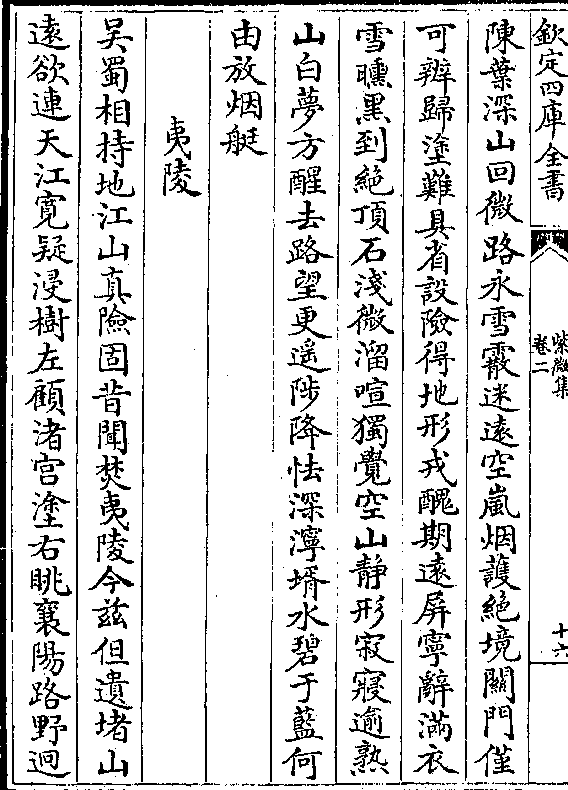 欽定四庫全書
紫微集
卷二
十六
陳葉深山回微路永雪霰迷遠空嵐烟護絶境關門僅
可辨歸塗難具省設險得地形戎醜期遠屏寧辭滿衣
雪曛黑到絶頂石淺微溜喧獨覺空山静形寂寢逾熟
山白夢方醒去路望更遥陟降怯深濘壻水碧于藍何
由放烟艇
夷陵
吴蜀相持地江山真險固昔聞焚夷陵今兹但遺堵山
遠欲連天江寛疑浸樹左顧渚宫塗右眺襄陽路野迥